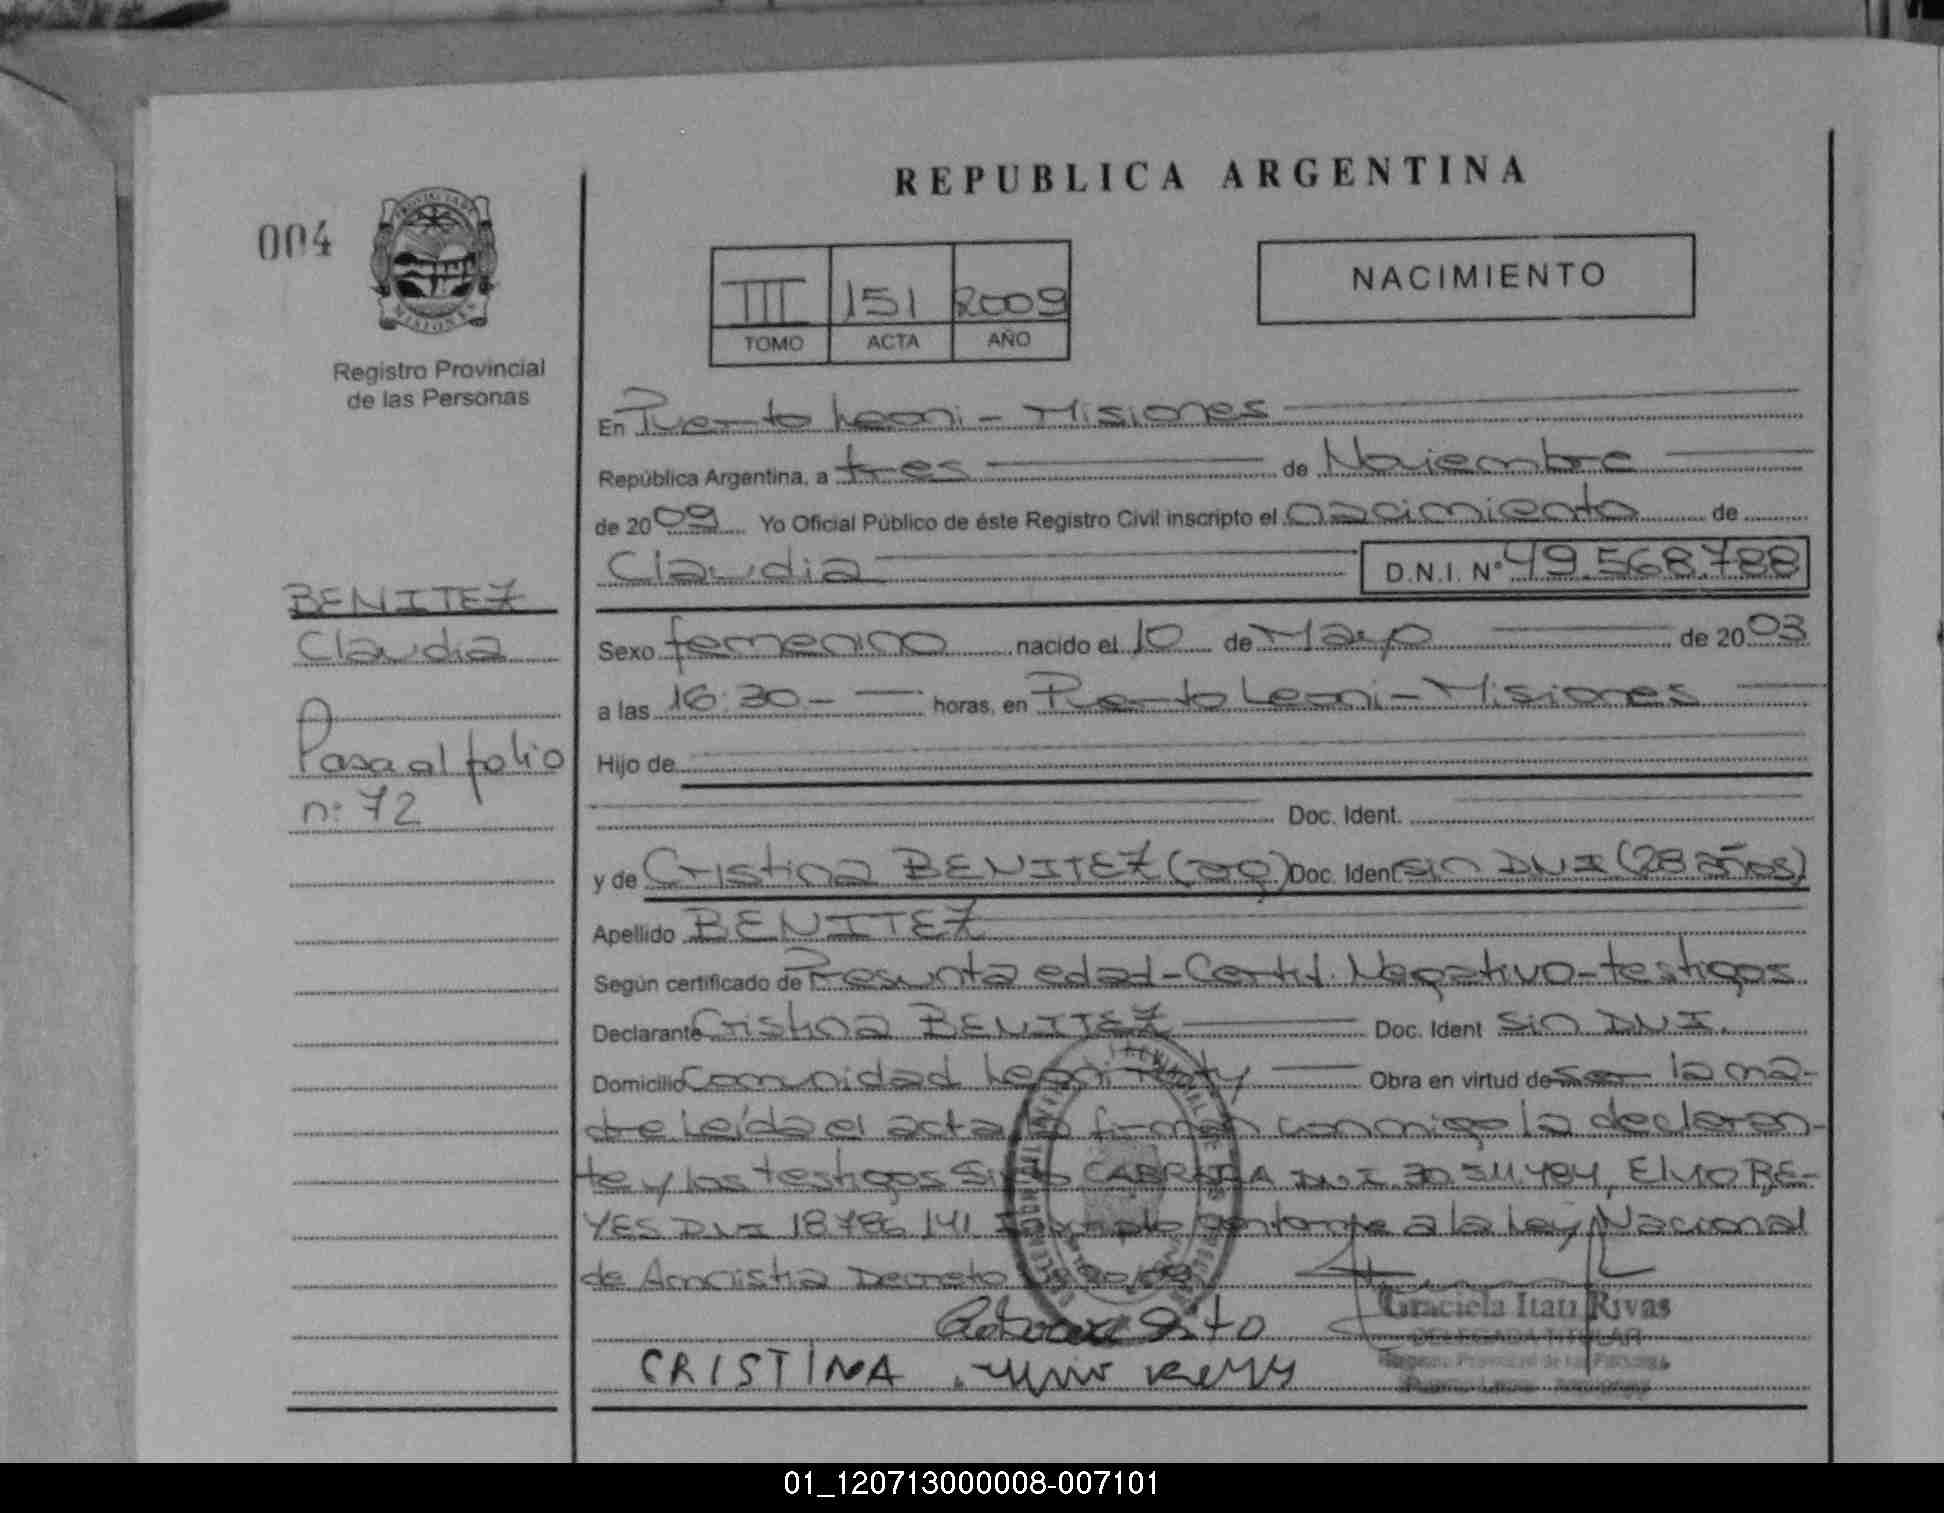 REPUBLICA ARGENTINA
004
PROVINCIA DE
MISIONES
Registro Provincial
de las Personas
III 151 2009
TOMO ACTA AÑO
NACIMIENTO
En Puerto Leoni - Misiones
República Argentina, a tres de Noviembre
de 2009 Yo Oficial Público de éste Registro Civil inscripto el nacimiento de
Claudia D.N.I. N° 49.568.788
BENITEZ
Claudia
Pasa al folio
n: 72
Sexo femenino nacido el 10 de Mayo de 2003
a las 16:30.- horas, en Puerto Leoni - Misiones
Hijo de
Doc. Ident.
y de Cristina BENITEZ (aq) Doc. Ident sin DNI (28 años)
Apellido BENITEZ
Según certificado de Presunta edad - Certif. Negativo - testigos
Declarante Cristina BENITEZ Doc. Ident sin DNI.
Domicilio Comunidad Leoni Poty Obra en virtud de ser la ma-
dre Leída el acta la firman conmigo la declaran-
te y los testigos CABRERA DNI 30.511.484, Elvio RE-
YES DNI 18.786.141 conforme a la Ley Nacional
de Amnistia Decreto
CRISTINA
Graciela Itatí Rivas
DELEGADA TITULAR
Registro Provincial de las Personas
01_120713000008-007101